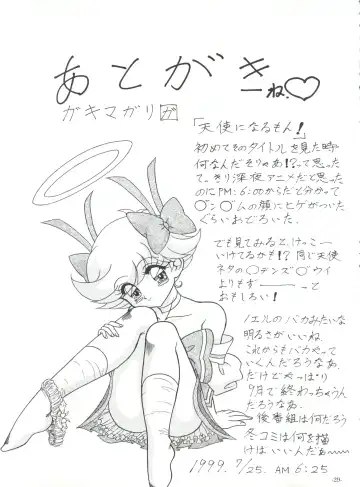 あとがき
ーね.♡
ガキマガリ 団
「天使になるもん!」
初めてそのタイトルを見た時
何なんだそりゃあ!?って思った
てっきり深夜アニメだと思った
のにPM:6:00からだと分かって
〇ン〇ムの顔にヒゲがついた
ぐらいおどろいた.
でも見てみると、けっこー
いけてるかも!? 同じ天使
ネタの〇デンズ〇ウイ
よりもずーーーっと
おもしろい!
ノエルのバカみたいな
明るさがいいね.
これからもバカやって
いくんだろうなあ.
だけどやっぱり
9月で終わっちゃうん
だろうなあ.
後番組は何だろう
冬コミは何を描
けばいいんだぁ〜
1999. 7/25. AM 6:25
-29-